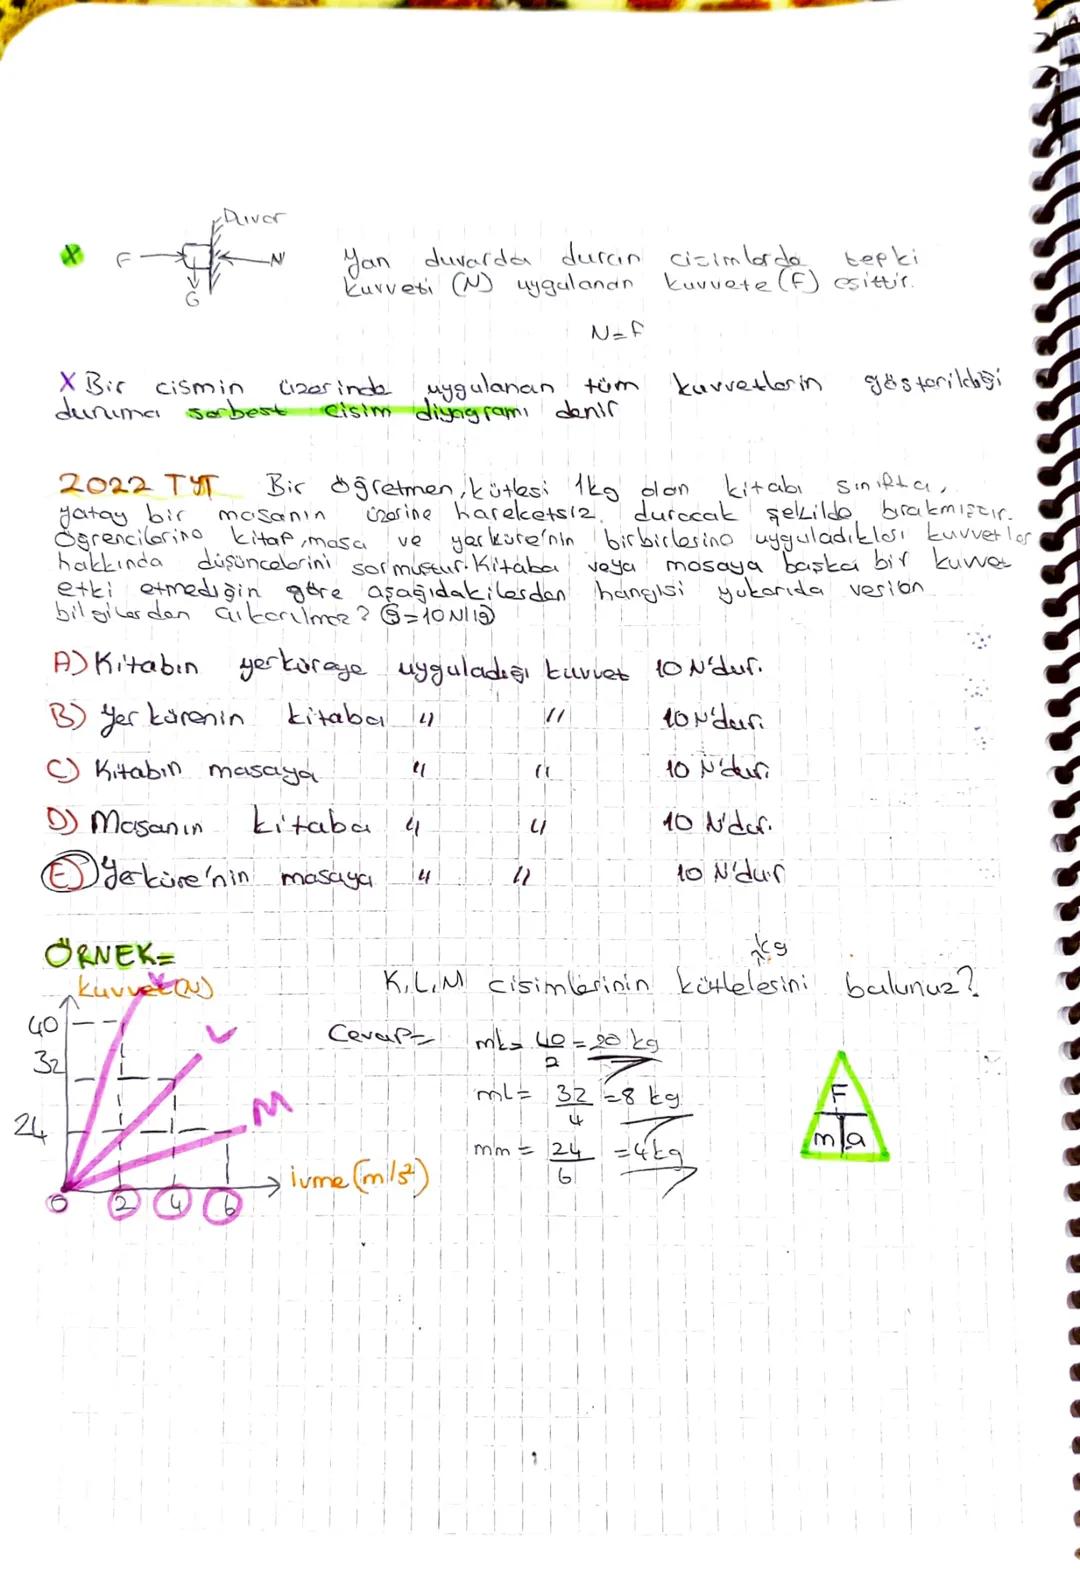 Duvar
X F N Yan duvarda duran cisimlerde tepki
G kuvveti (N) uygulanan kuvvete (F) eşittir.
N=F
X Bir cismin üzerinde uygulanan tüm kuvvetlerin gösterildiği
duruma serbest cisim diyagramı denir
2022 TYT Bir öğretmen, kütlesi 1kg olan kitabı sınıfta,
yatay bir masanın üzerine hareketsiz duracak şekilde bırakmıştır.
Öğrencilerine kitap, masa ve yerküre'nin birbirlerine uyguladıkları kuvvetler
hakkında düşüncelerini sormuştur. Kitaba veya masaya başka bir kuvvet
etki etmediğin göre aşağıdakilerden hangisi yukarıda verilen
bilgilerden çıkarılmaz?
A) Kitabın yerküreye uyguladığı kuvvet 10 N'dur.
B) Yer kürenin kitaba " " 10 N'dur.
C) Kitabın masaya " " 10 N'dur.
D) Masanın kitaba " " 10 N'dur.
E) Yerküre'nin masaya " " 10 N'dur
ÖRNEK=
kg
Kuvvet(N) K, L, M cisimlerinin kütlelesini bulunuz?
40 Cevap= mk= 40/2 = 20 kg
L
32
ml= 32/4 =8 kg
F
24 M mm = 24/6 =4kg
m a
ivme (m/s²)
0 2 4 6